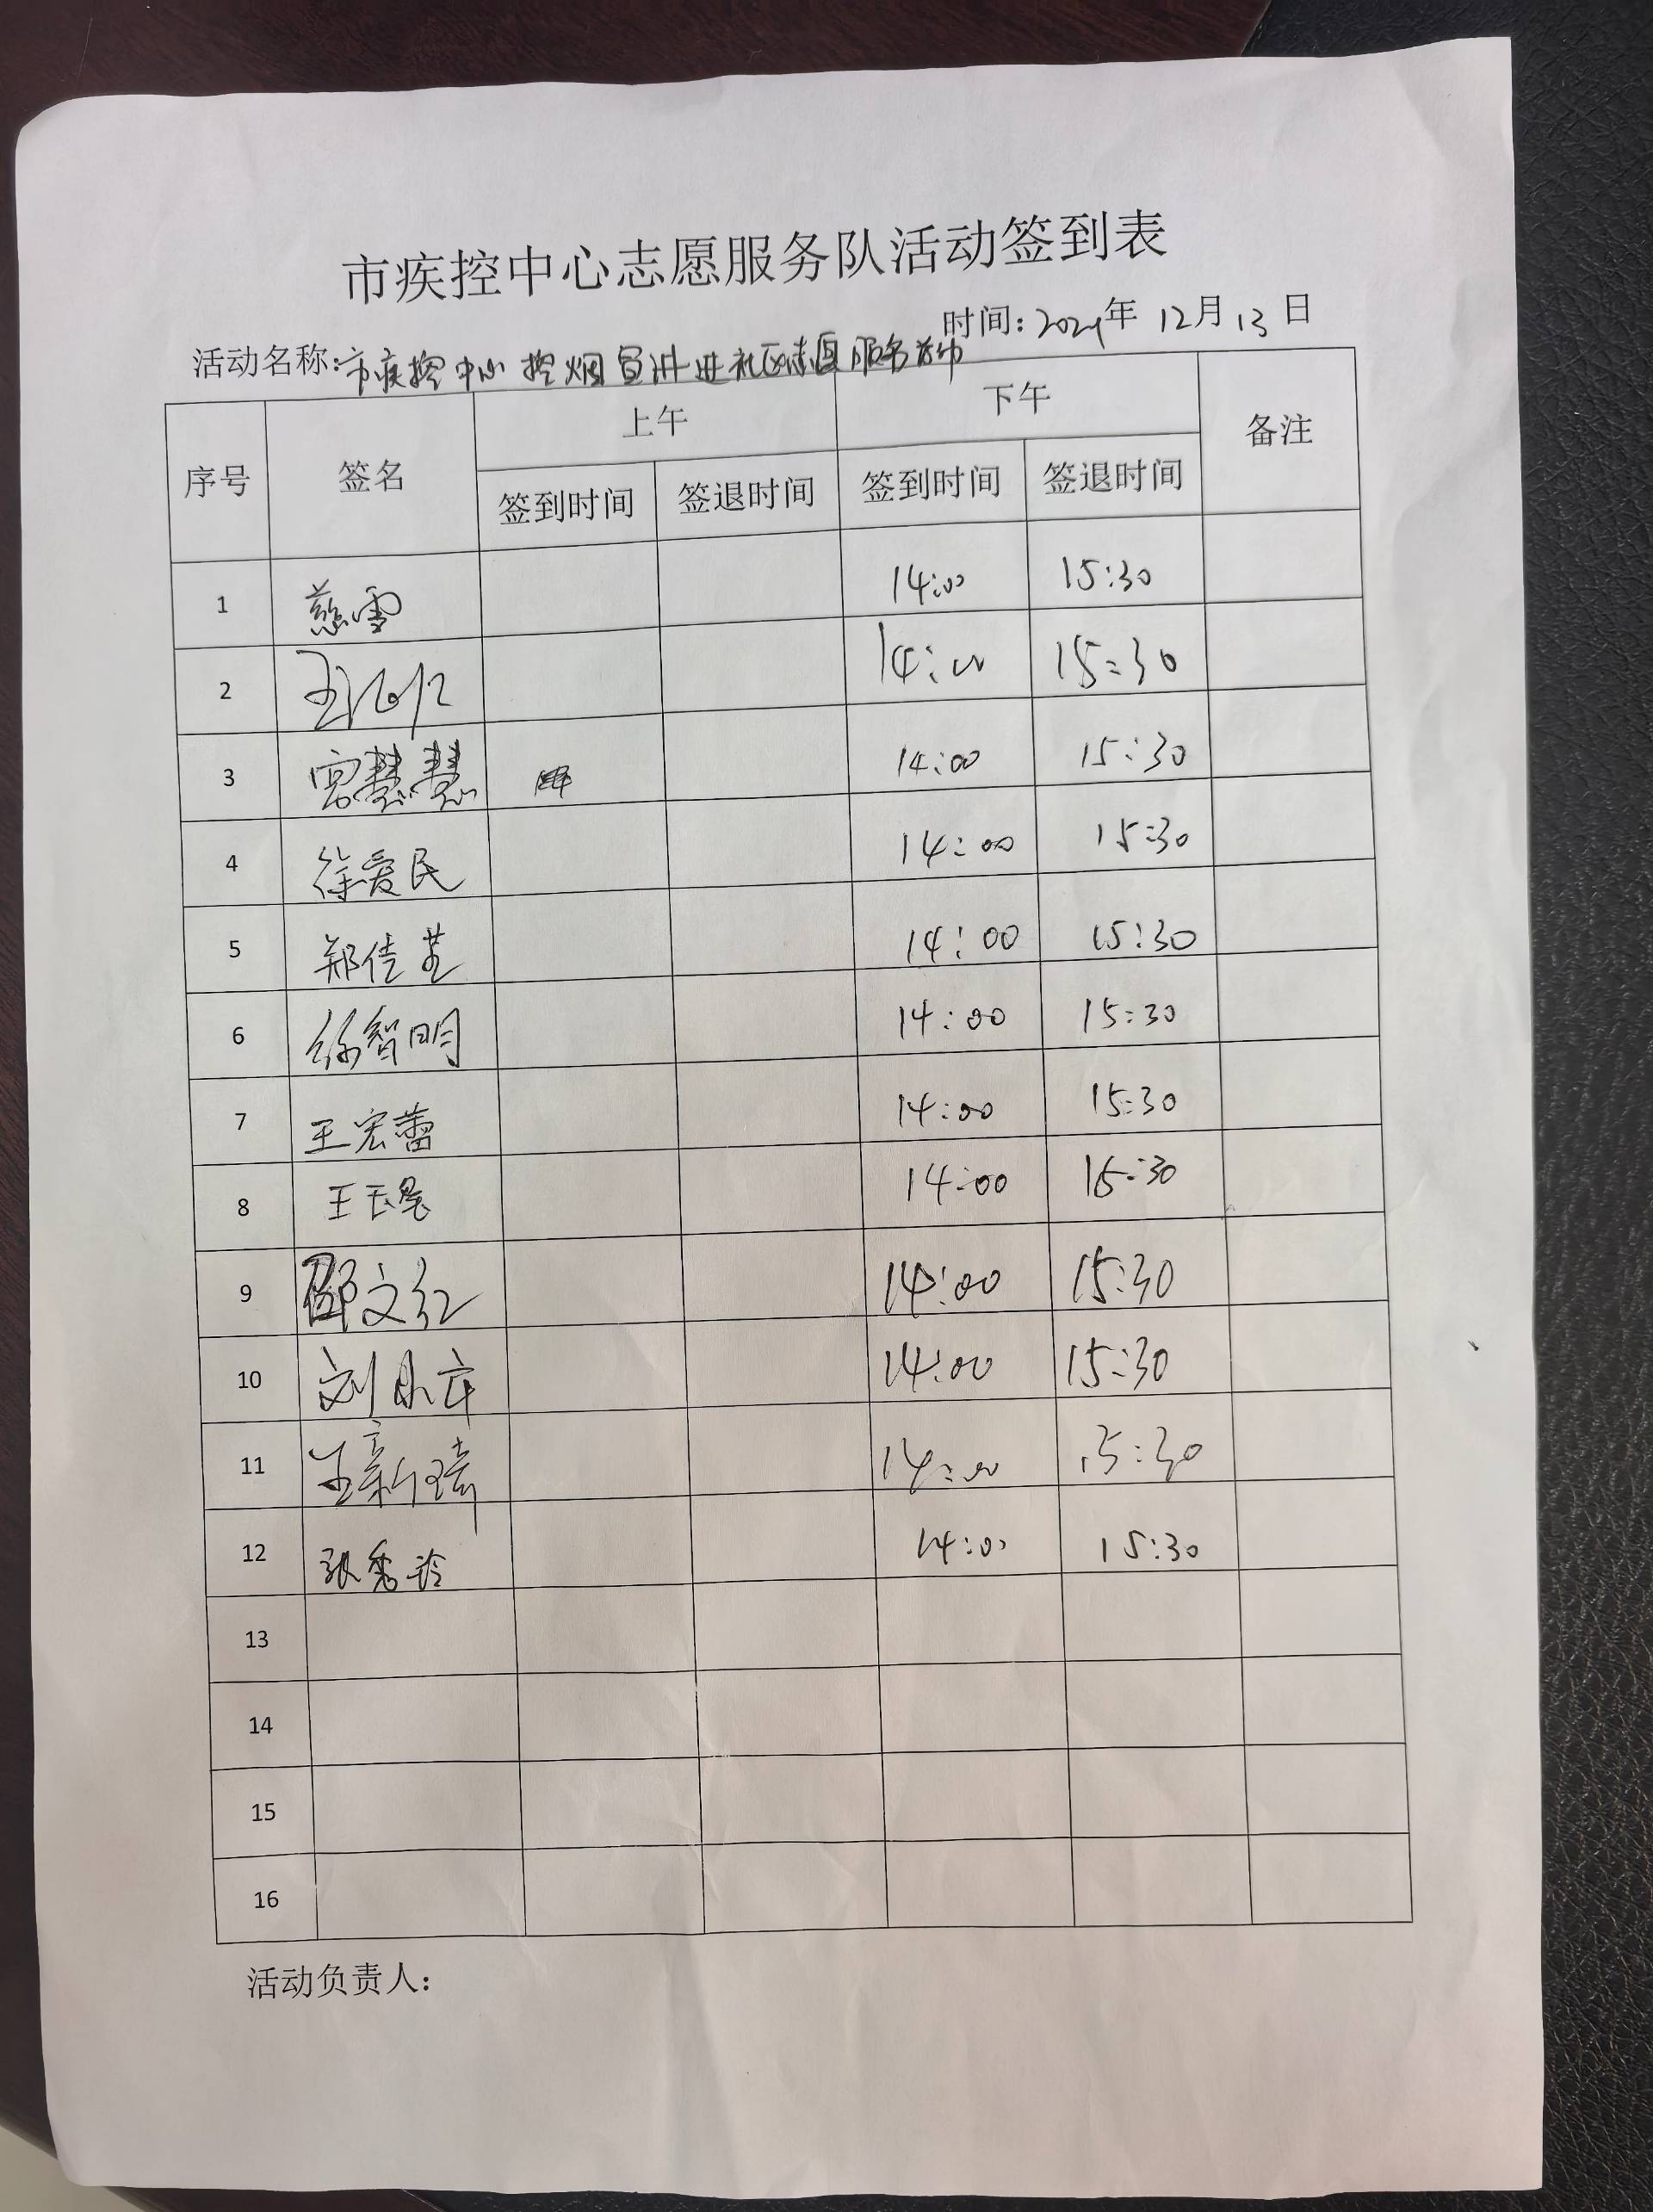 市疾控中心志愿服务队活动签到表
时间：2024年 12月 13 日
活动名称：市疾控中心控烟宣讲进社区志愿服务活动
序号 签名 上午 下午 备注
签到时间 签退时间 签到时间 签退时间
1 慈雪 14:00 15:30
2 14:00 15:30
3 宫慧慧 14:00 15:30
4 徐爱民 14:00 15:30
5 郑佳 14:00 15:30
6 徐智明 14:00 15:30
7 王宏蕾 14:00 15:30
8 王玉 14:00 15:30
9 邵文红 14:00 15:30
10 刘 14:00 15:30
11 王新琦 14:00 15:30
12 张秀玲 14:00 15:30
13
14
15
16
活动负责人：